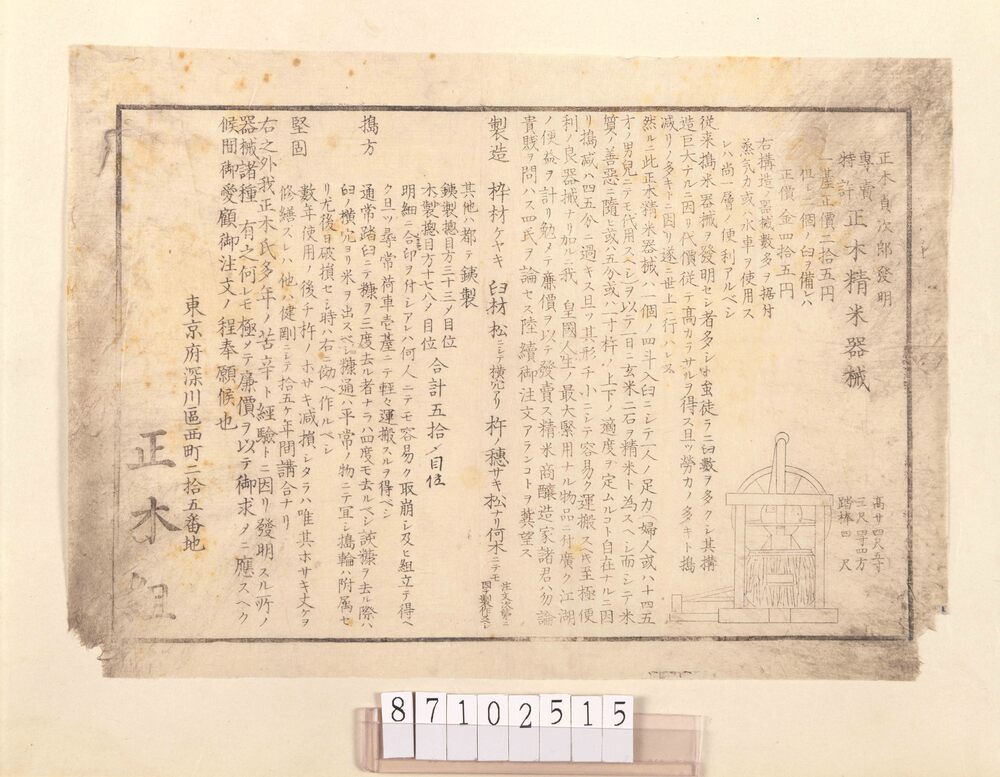 正木貞次郎發明
専賣特許 正木精米器械
一基正價二拾五円
但シ一個ノ臼ヲ備レハ
正價 金四拾五円
右構造ノ器械數多ヲ据付
蒸気力或ハ水車ヲ使用ス
レハ尚一層ノ便利アルベシ
高サ四尺五寸
三尺四寸四方
踏棒四尺
従来搗米器械ヲ發明セシ者多シ
徒ラニ臼數ヲ多クシ其搆
造巨大ナルニ因リ代價従テ高カラサルヲ得ス且ツ勞力ノ多キト搗
減リノ多キトニ因リ遂ニ世上ニ行ハレス
然ルニ此正木精米器械ハ一個ノ四斗入臼ニシテ一人ノ足力婦人或ハ十四五
才ノ男児ニテモ代用スヘシヲ以テ一日ニ玄米二石ヲ精米ト為スヘシ而シテ米
質ノ善惡ニ隨ヒ或ハ五分或ハ一寸杵ノ上下ノ適度ヲ定ムルコト自在ナルニ因
リ搗减ハ四五分ニ過キス且ヲ其形チ小ニシテ容易ク運搬ス
至極便
利ノ良器械ナリ加ルニ我 皇國人生ノ最大緊用ナル物品ニ付廣ク江湖
ノ便益ヲ計リ勉メテ廉價ヲ以テ發賣ス精米商釀造家諸君ハ勿論
貴賎ヲ問ハス四民ヲ論セス陸續御注文アランコトヲ冀望ス
製造 枠材ケヤキ 臼材松ニシテ横穴アリ 杵ノ穂サキ松ナリ何木ニテモ
其他ハ都テ銕製
銕製摠目方三十三〆目位
木製摠目方十七八〆目位 合計五拾〆目位
明細ニ合印ヲ付シアレハ何人ニテモ容易ク取崩シ及ヒ組立テ得ヘ
ク且ツ尋常荷車壱䑓ニテ軽々運搬スルヲ得ベシ
搗方 通常踏臼ニテ糠ヲ三度去ル者ナラハ四度モ去ルベシ
糠ヲ去ル際ハ
臼ノ横穴ヨリ米ヲ出スベシ糠通ハ平常ノ物ニテ宜シ搗輪ハ附属セ
リ尤後日破損セシ時ハ右ニ倣ヘ作ルベシ
堅固 數年使用ノ後チ杵ノホサキ减損シタラハ唯其ホサキ丈ケヲ
修繕スレハ他ハ健剛ニシテ拾五ケ年間請合ナリ
右之外我正木氏多年ノ苦辛ト經驗トニ因リ發明スル所ノ
器械諸種有之何レモ極メテ廉價ヲ以テ御求メニ應スヘク
候間御愛顧御注文ノ程奉願候也
東京府深川區西町二拾五番地
正木組
87102515